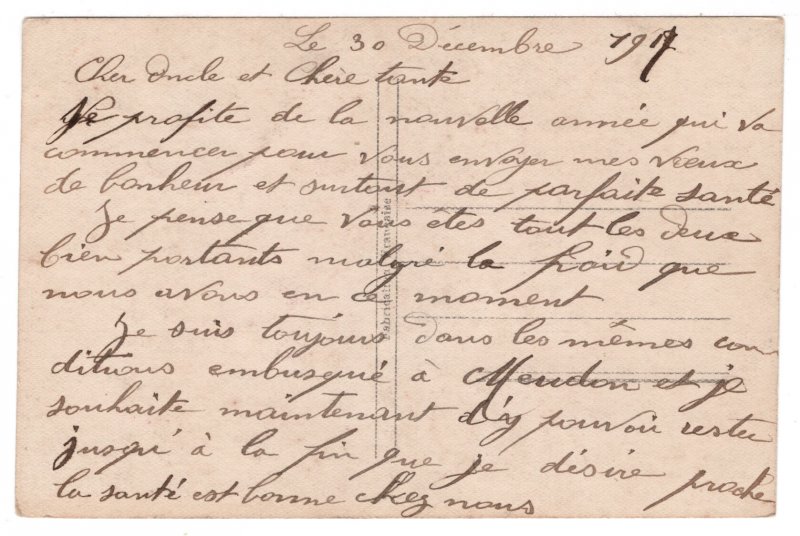 Le 30 Décembre 1917
Cher Oncle et Chère tante
Je profite de la nouvelle année qui va
commencer pour vous envoyer mes vœux
de bonheur et surtout de parfaite santé
Je pense que vous êtes tout les deux
bien portants malgré la froid que
nous avons en ce moment
Je suis toujours dans les mêmes con
ditions embusqué à Meudon et je
souhaite maintenant d'y pouvoir rester
jusqu'à la fin que je désire proche
la santé est bonne chez nous
Fabrication Française